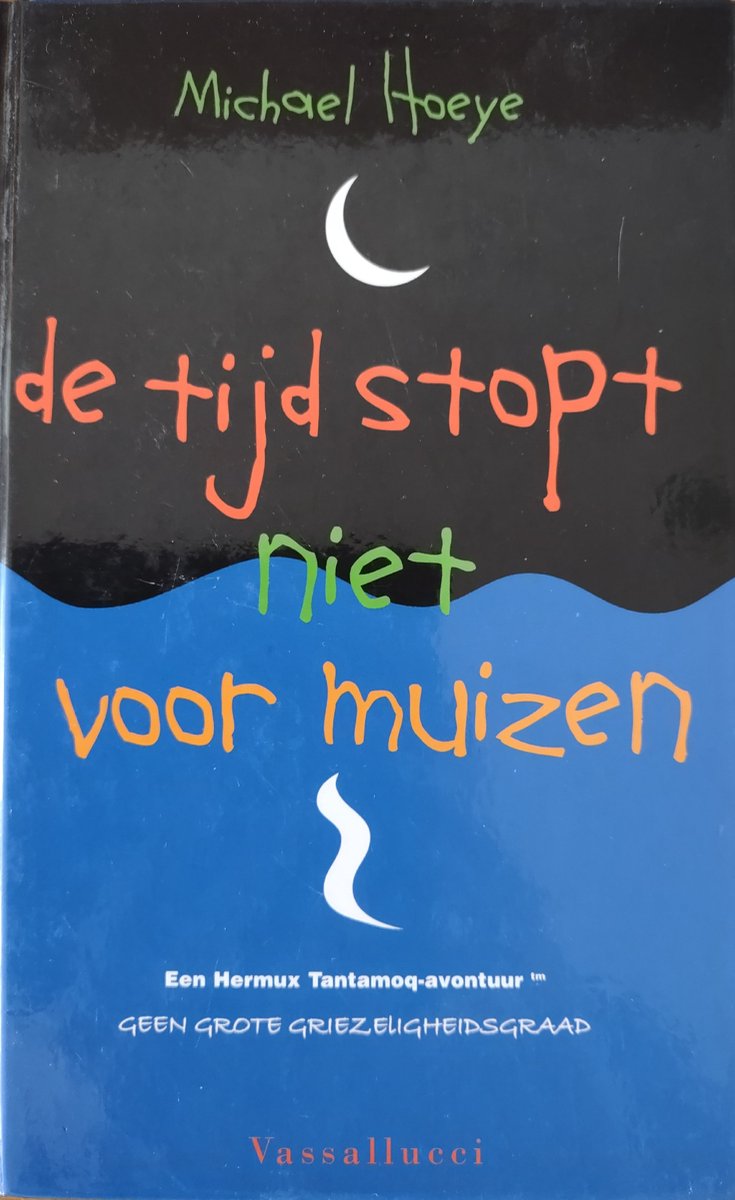 Michael Hoeye
de tijd stopt
niet
voor muizen
Een Hermux Tantamoq-avontuur ™
GEEN GROTE GRIEZELIGHEIDSGRAAD
Vassallucci